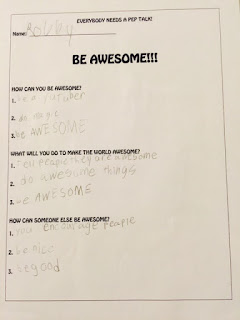 EVERYBODY NEEDS A PEP TALK!
Name: Bobby
BE AWESOME!!!
HOW CAN YOU BE AWESOME?
1. be a YuTuber
2. do magic
3. be AWESOME
WHAT WILL YOU DO TO MAKE THE WORLD AWESOME?
1. tell people they are awesome
2. do awesome things
3. be AWESOME
HOW CAN SOMEONE ELSE BE AWESOME?
1. you encourage people
2. be nice
3. be good